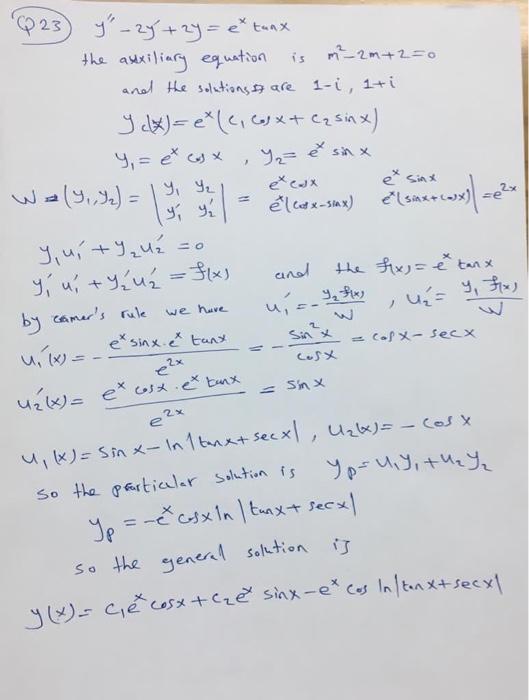 Q23) y'' - 2y' + 2y = e^x tanx
the auxiliary equation is m² - 2m + 2 = 0
and the solutions are 1-i, 1+i
y_c(x) = e^x (c₁ cosx + c₂ sinx)
y₁ = e^x cosx , y₂ = e^x sinx
W = (y₁, y₂) = | y₁ y₂ | = e^x cosx e^x sinx |
| y₁' y₂' | e^x(cosx-sinx) e^x(sinx+cosx) | = e^2x
y₁u₁' + y₂u₂' = 0
y₁'u₁' + y₂'u₂' = f(x) and the f(x) = e^x tanx
by cramer's rule we have u₁' = - y₂f(x)/W , u₂' = y₁f(x)/W
u₁'(x) = - e^x sinx·e^x tanx / e^2x = - sin²x / cosx = cosx - secx
u₂'(x) = e^x cosx·e^x tanx / e^2x = sinx
u₁(x) = sinx - ln|tanx + secx| , u₂(x) = - cosx
so the particular solution is y_p = u₁y₁ + u₂y₂
y_p = -e^x cosx ln|tanx + secx|
so the general solution is
y(x) = c₁e^x cosx + c₂e^x sinx - e^x cos ln|tanx + secx|